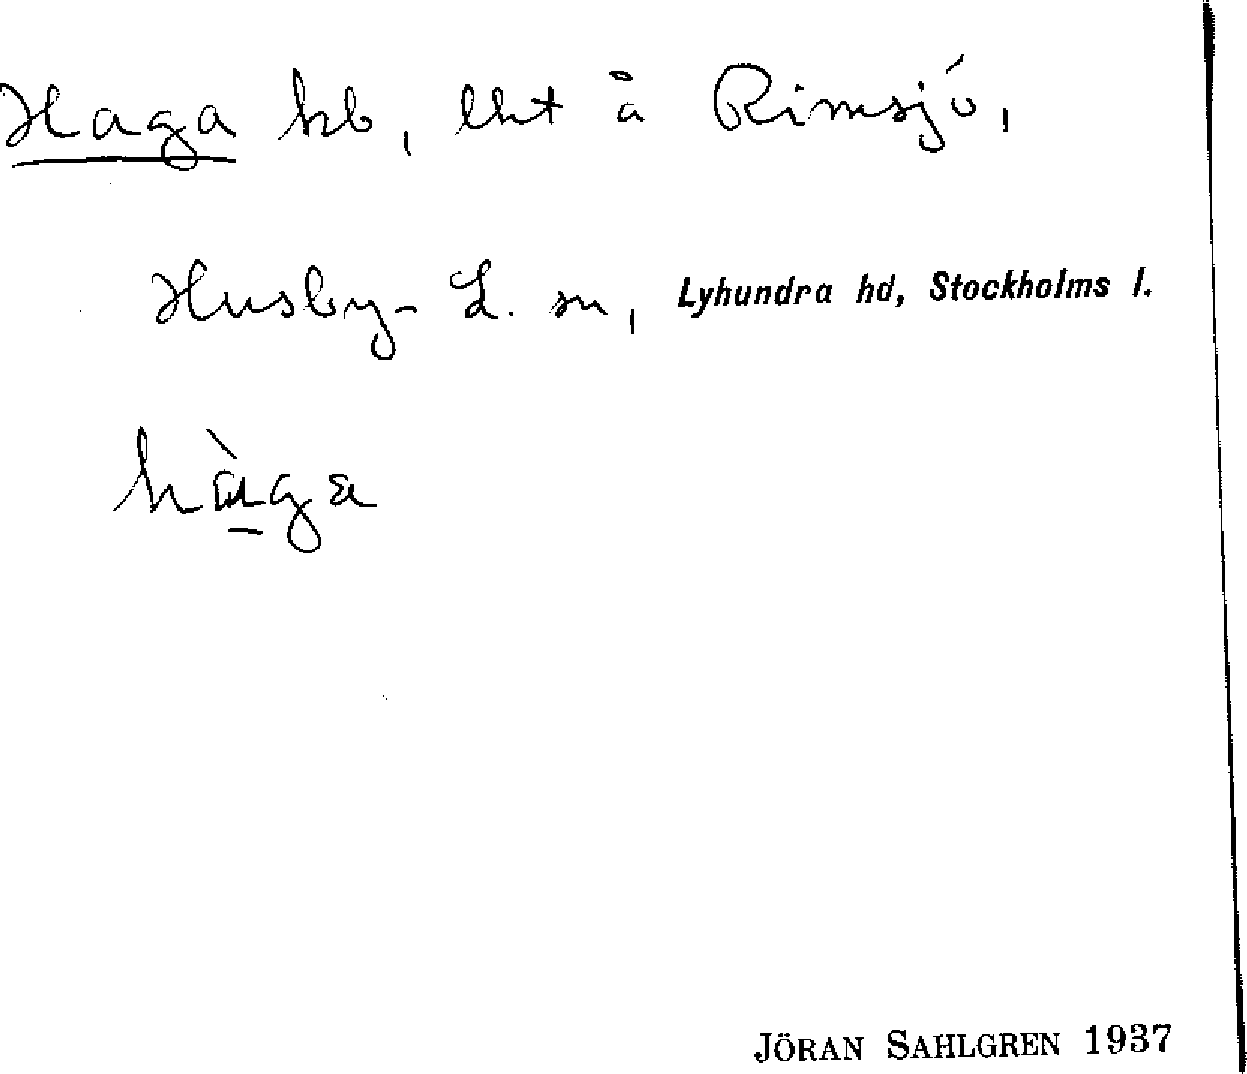 Haga hb, lht å Rimsjö,
Husby-L. sn, Lyhundra hd, Stockholms l.
hàga
JÖRAN SAHLGREN 1937